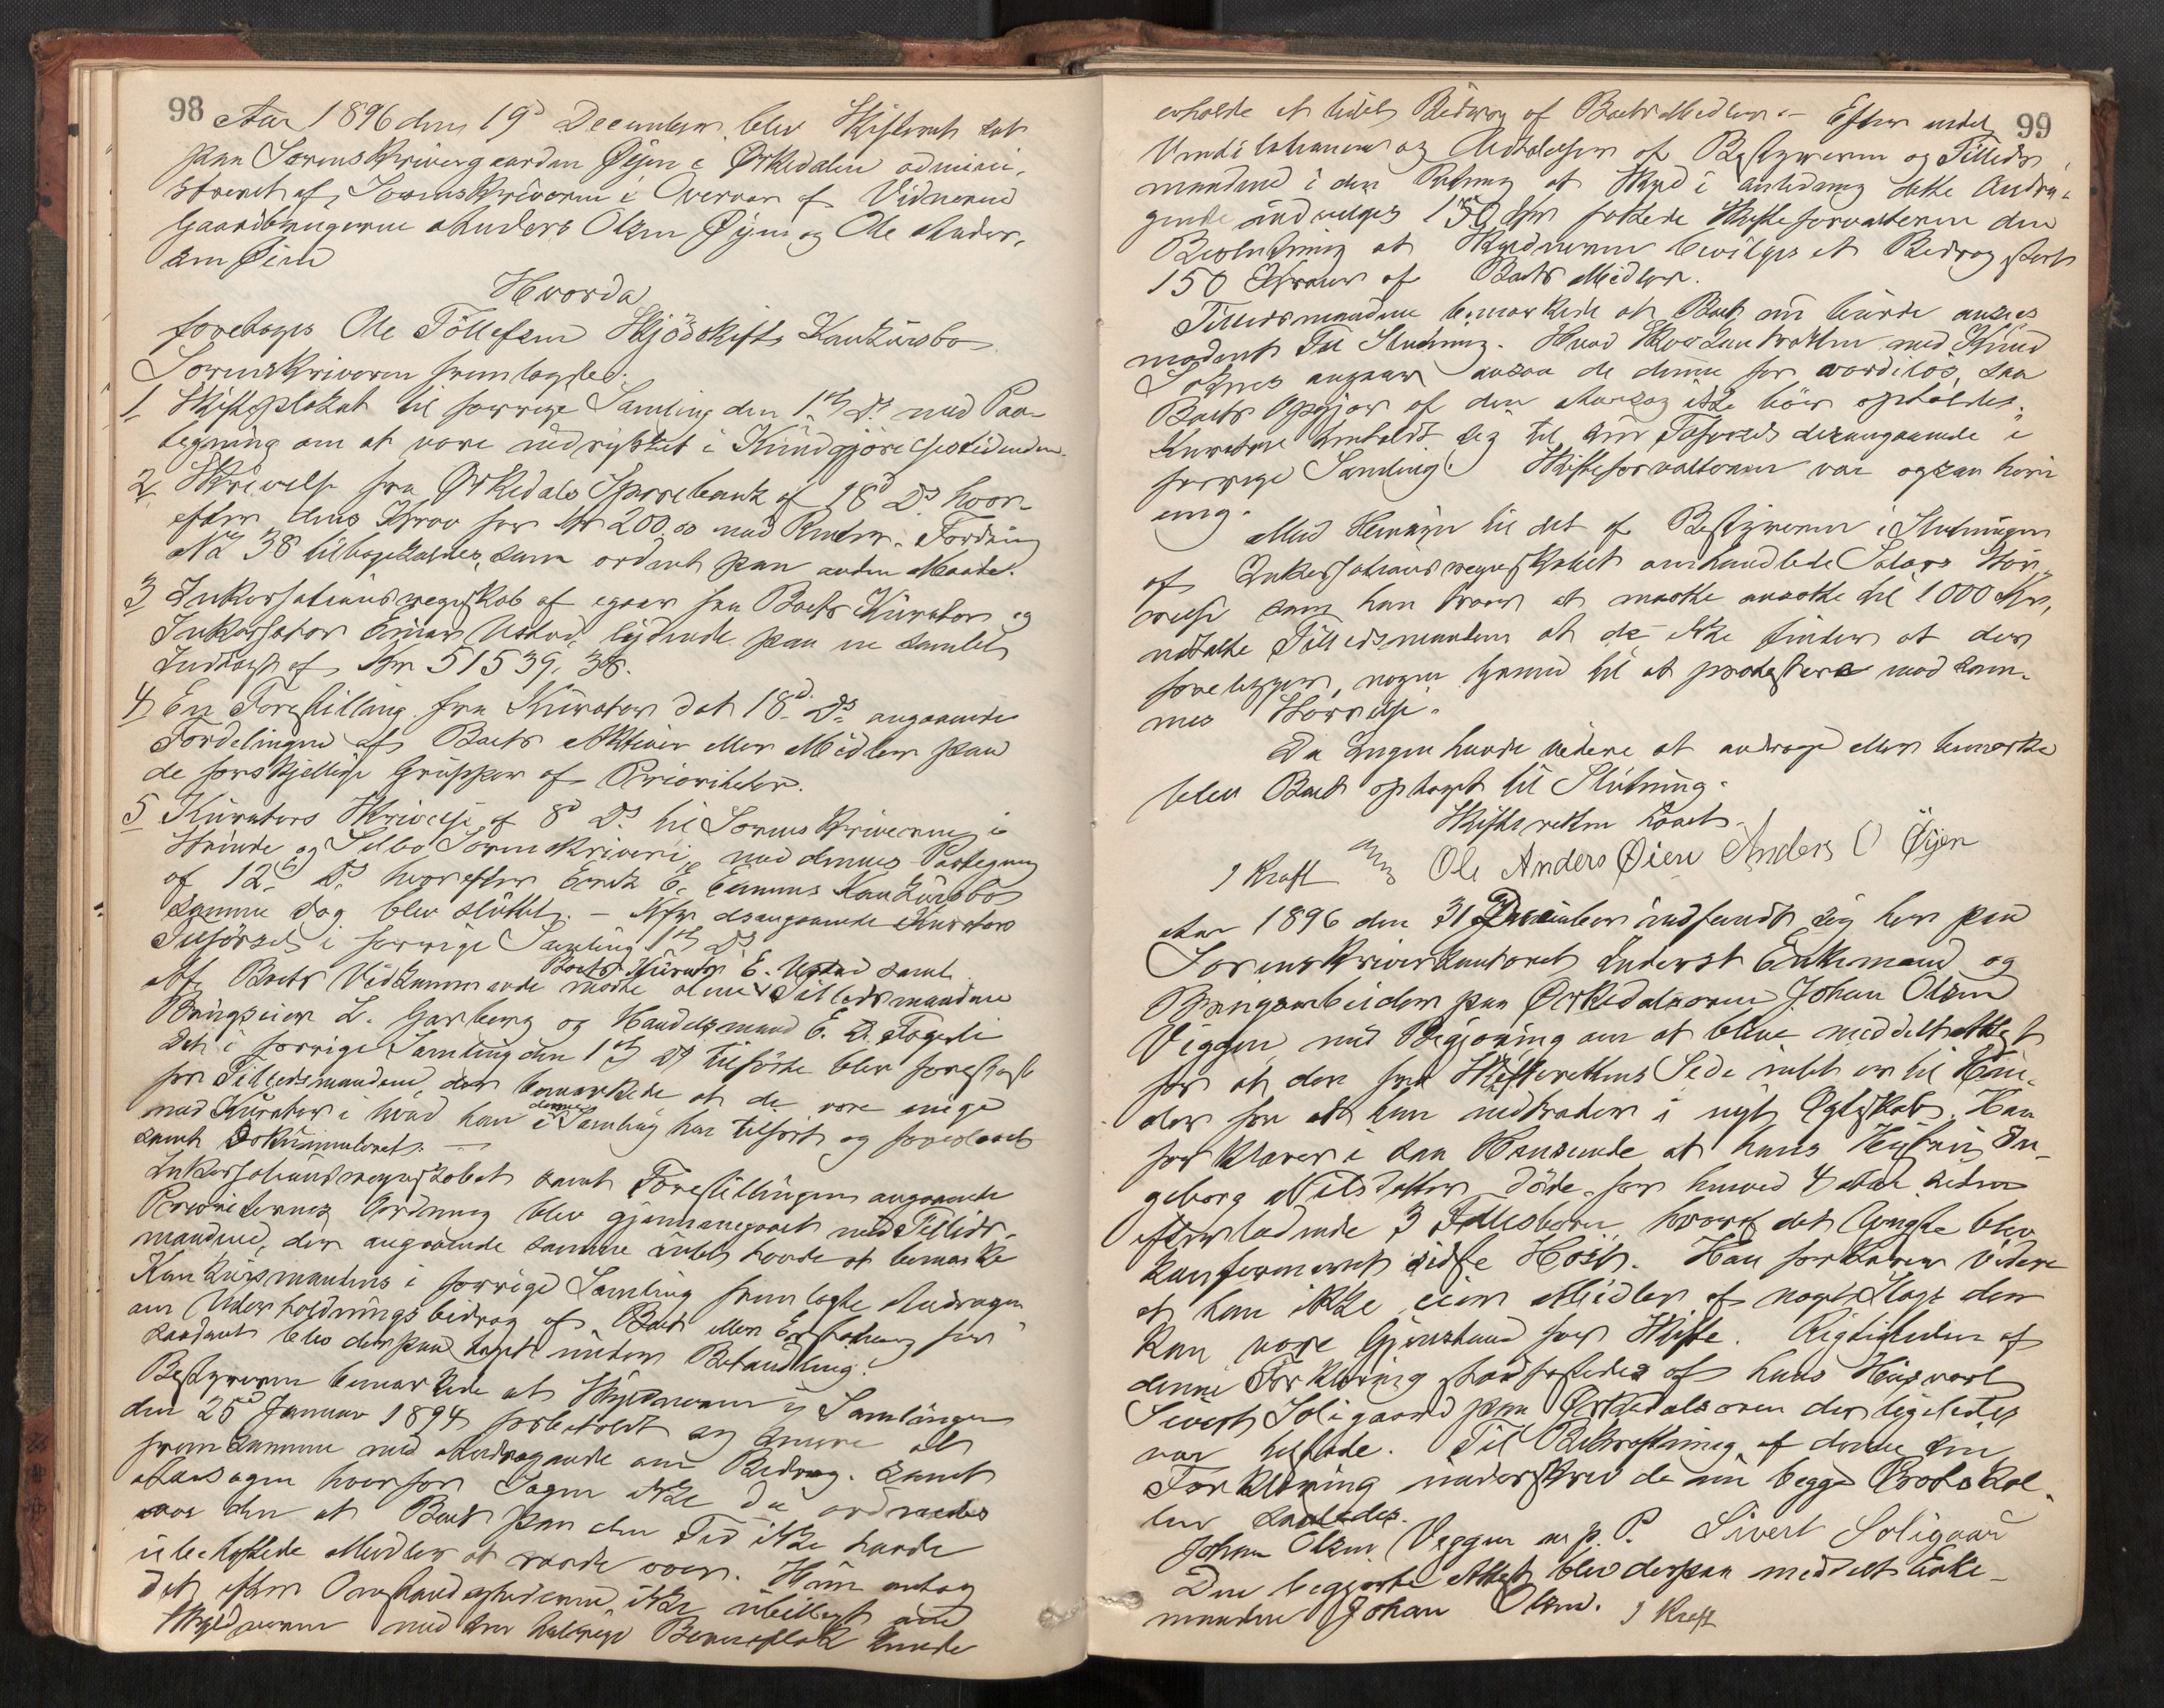 98
Aar 1896 den 19d December blev Skifteret sat
paa Sorenskrivergaarden Øyen i Ørkedalen admini-
streret af Sorenskriveren i Overvær af Vidnerne
Gaardbrugerne Anders Olsen Øyen og Ole Anders-
sen Øien
Hvorda
foretoges Ole Töllefsen Skjödskifts Konkursbo
Sorenskriveren fremlagde:
1 Skifteplakat til forrige Samling den 1ste Ds med Paa-
tegning om at være indrykket i Kundgjörelsestidenden.
2 Skrivelse fra Ørkedals Sparebank af 18d Ds hvor-
efter dens Krav for Kr 200,00 med Renter. Fordring
No 38 tilbagekaldes, som ordnet paa anden Maade.
3 Inkassationsregnskab af egaar fra Boets Kurator og
Inkassator Einar Ustad, lydende paa en samlet
Indtægt af Kr 51539,38.
4 En Forestilling fra Kurator dat 18d Ds angaaende
Fordelingen af Boets Aktiver eller Midler paa
de forskjellige Grupper af Prioriteter.
5 Kurators Skrivelse af 8d Ds til Sorenskriveren i
Strinde og Selbo Sorenskriveri med dennes Paategning
af 12 Ds hvorefter E. Konkursbo
samme Dag blev sluttet. – Kfr desangaaende Kurators
Tilförsel i forrige Samling 1ste Ds
Boets Kurator E. Ustad samt
Af Boets Vedkommende mödte alene Tillidsmændene
Brugseier L. Garberg og Handelsmand E. D. Fagerli
Det i forrige Samling den 1ste Ds tilförte blev forelæst
for Tillidsmændene, der bemærkede at de vare enige
med Kurator i hvad han i denne Samling har tilfört og foreslaaet
samt Dokumenteret. —
Inkassationsregnskabet samt Forestillingen angaaende
Prioriteternes Ordning blev gjennemgaaet med Tillids-
mændene, der angaaende samme intet havde at bemærke
Konkursmandens i forrige Samling fremlagte Andragen
om Underholdningsbidrag af Boet eller Erstatning for
saadant blev derpaa taget under Behandling.
Bestyreren bemærkede at Skyldneren i Samlingen
den 25d Januar 1894 forbeholdt sig senere at
fremkomme med Andragende om Bidrag. samt
Aarsagen hvorfor Sagen ikke da ordnedes
var den at Boet paa den Tid ikke havde
ubeheftede Midler at raade over. Han antog
det efter Omstændighederne ikke ubilligt om
Skyldneren med sin talrige Barneflok kunde
99
erholde et lidet Bidrag af Boets Midler. – Efter endel
Ventilationer og Udtalelser af Bestyreren og Tillids-
mændene i den Retning at Skyld i Anledning dette Andra-
gende indvilges 150 Kr fattede Skifteforvalteren den
Beslutning at Skyldneren bevilges et Bidrag stort
150 Kroner af Boets Midler.
Tillidsmændene bemærkede at Boet nu burde ansees
modent til Slutning. Hvad Skovkontrakten med Knud
angaar ansaa de denne for værdilös, saa
Boets Opgjör af den Aarsag ikke bör opholdes.
Kurator henholdt sig til sin Tilförsel desangaaende i
forrige Samling. Skifteforvalteren var ogsaa heri
enig.
Med Hensyn til det af Bestyreren i Slutningen
af Inkassationsregnskabet omhandlede Salærs Stör-
relse som han troer at maatte ansætte til 1000 Kr,
udtalte Tillidsmændene at de ikke finder at der
foreligger nogen Grund til at protestere mod sam-
mes Störrelse.
Da Ingen havde videre at andrage eller bemærke
blev Boet optaget til Slutning.
Skifteretten hævet.
J Kraft Ole Anders Øien Anders O Øyen
Aar 1896 den 31 December indfandt sig her paa
Sorenskriverkontoret Inderst Enkemand og
Bryggearbeider paa Ørkedalsören Johan Olsen
Viggen med Begjæring om at blive meddelt Attest
for at der fra Skifterettens Side intet er til Hin-
der for at han indtræder i nyt Ægteskab. Han
forklarer i saa Henseende at hans Hustru In-
geborg Nilsdatter döde for henved 4 Aar siden
efterladende 3 Fællesbörn, hvoraf det Yngste blev
konfirmeret sidste Höst. Han forklarer videre
at han ikke eier Midler af noget Slags der
kan være Gjenstand for Skifte. Rigtigheden af
denne Forklaring stadfæstedes af hans Husvært
Sivert Soligaard paa Ørkedalsören der ligeledes
var tilstede. Til Bekræftning af denne sin
Forklaring underskrev de nu begge Protokol-
len saaledes.
Johan Olsen Veggen m. p. P. Sivert Soligaard
Den begjærte Attest blev derpaa meddelt Enke-
manden Johan Olsen. J Kraft